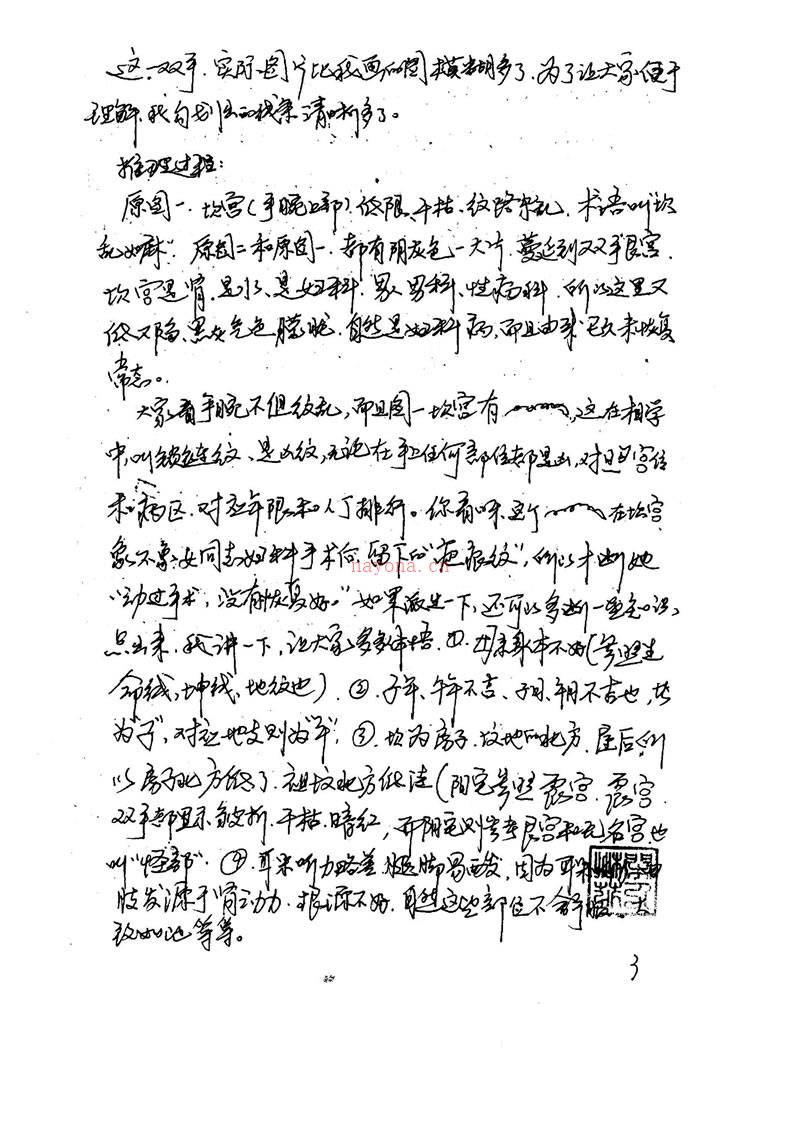 这一双手,实际图片比我画的图模糊多了,为了让大家便于
理解,我勾划出的线条清晰多了。
推理过程:
原图一,坎宫(手腕上部)低陷、干枯、纹路杂乱,术语叫“坎
乱如麻”。原图二和原图一,都有阴灰色一大片,蔓延到双手艮宫,
坎宫是肾、是水、是妇科,男人男科、性病科,所以这里又
低又陷、黑灰气色朦胧,自然是妇科病,而且由来已久未恢复
常态。
大家看手腕不但纹乱,而且图一坎宫有,这在相学
中,叫锁链纹、是凶纹,无论在手上任何部位都是凶,对应宫位
和病区,对应年限和人丁排行。你看呀,这个在坎宫
象不象女同志妇科手术后,留下的“疤痕纹”,所以才断她
“动过手术,没有恢复好。”如果派生一下,还可以多断一些知识
点出来,我讲一下,让大家多多体悟,①、母亲身体不好(参照生
命线,坤线,地纹也)。②、子年、午年不吉、子月、午月不吉也,坎
为“子”,对应地支则为“午”,③、坎为房子、坟地的北方,屋后,所
以房子北方低了,祖坟北方低洼(阳宅参照震宫,震宫
双手都显示皱折、干枯、暗红,而阴宅则参考艮宫和无名宫也
叫“怪部”。④、耳朵听力略差,腿脚易西发,因为耳朵
肢发源于肾动力,根源不好,自然这些部位不舒服,大
致如此等等。
3
nayona.cn